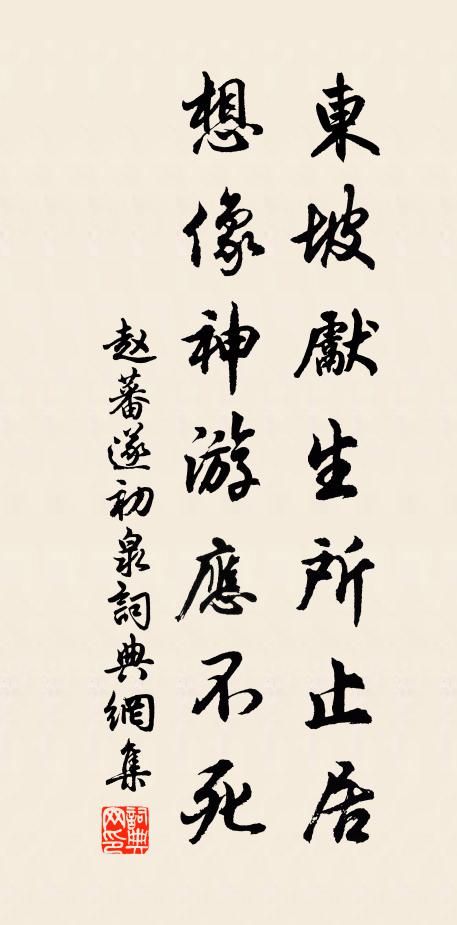 東坡獻生所止居
想像神游應不死
赵蕃遂初泉詞典網集
詞典网印